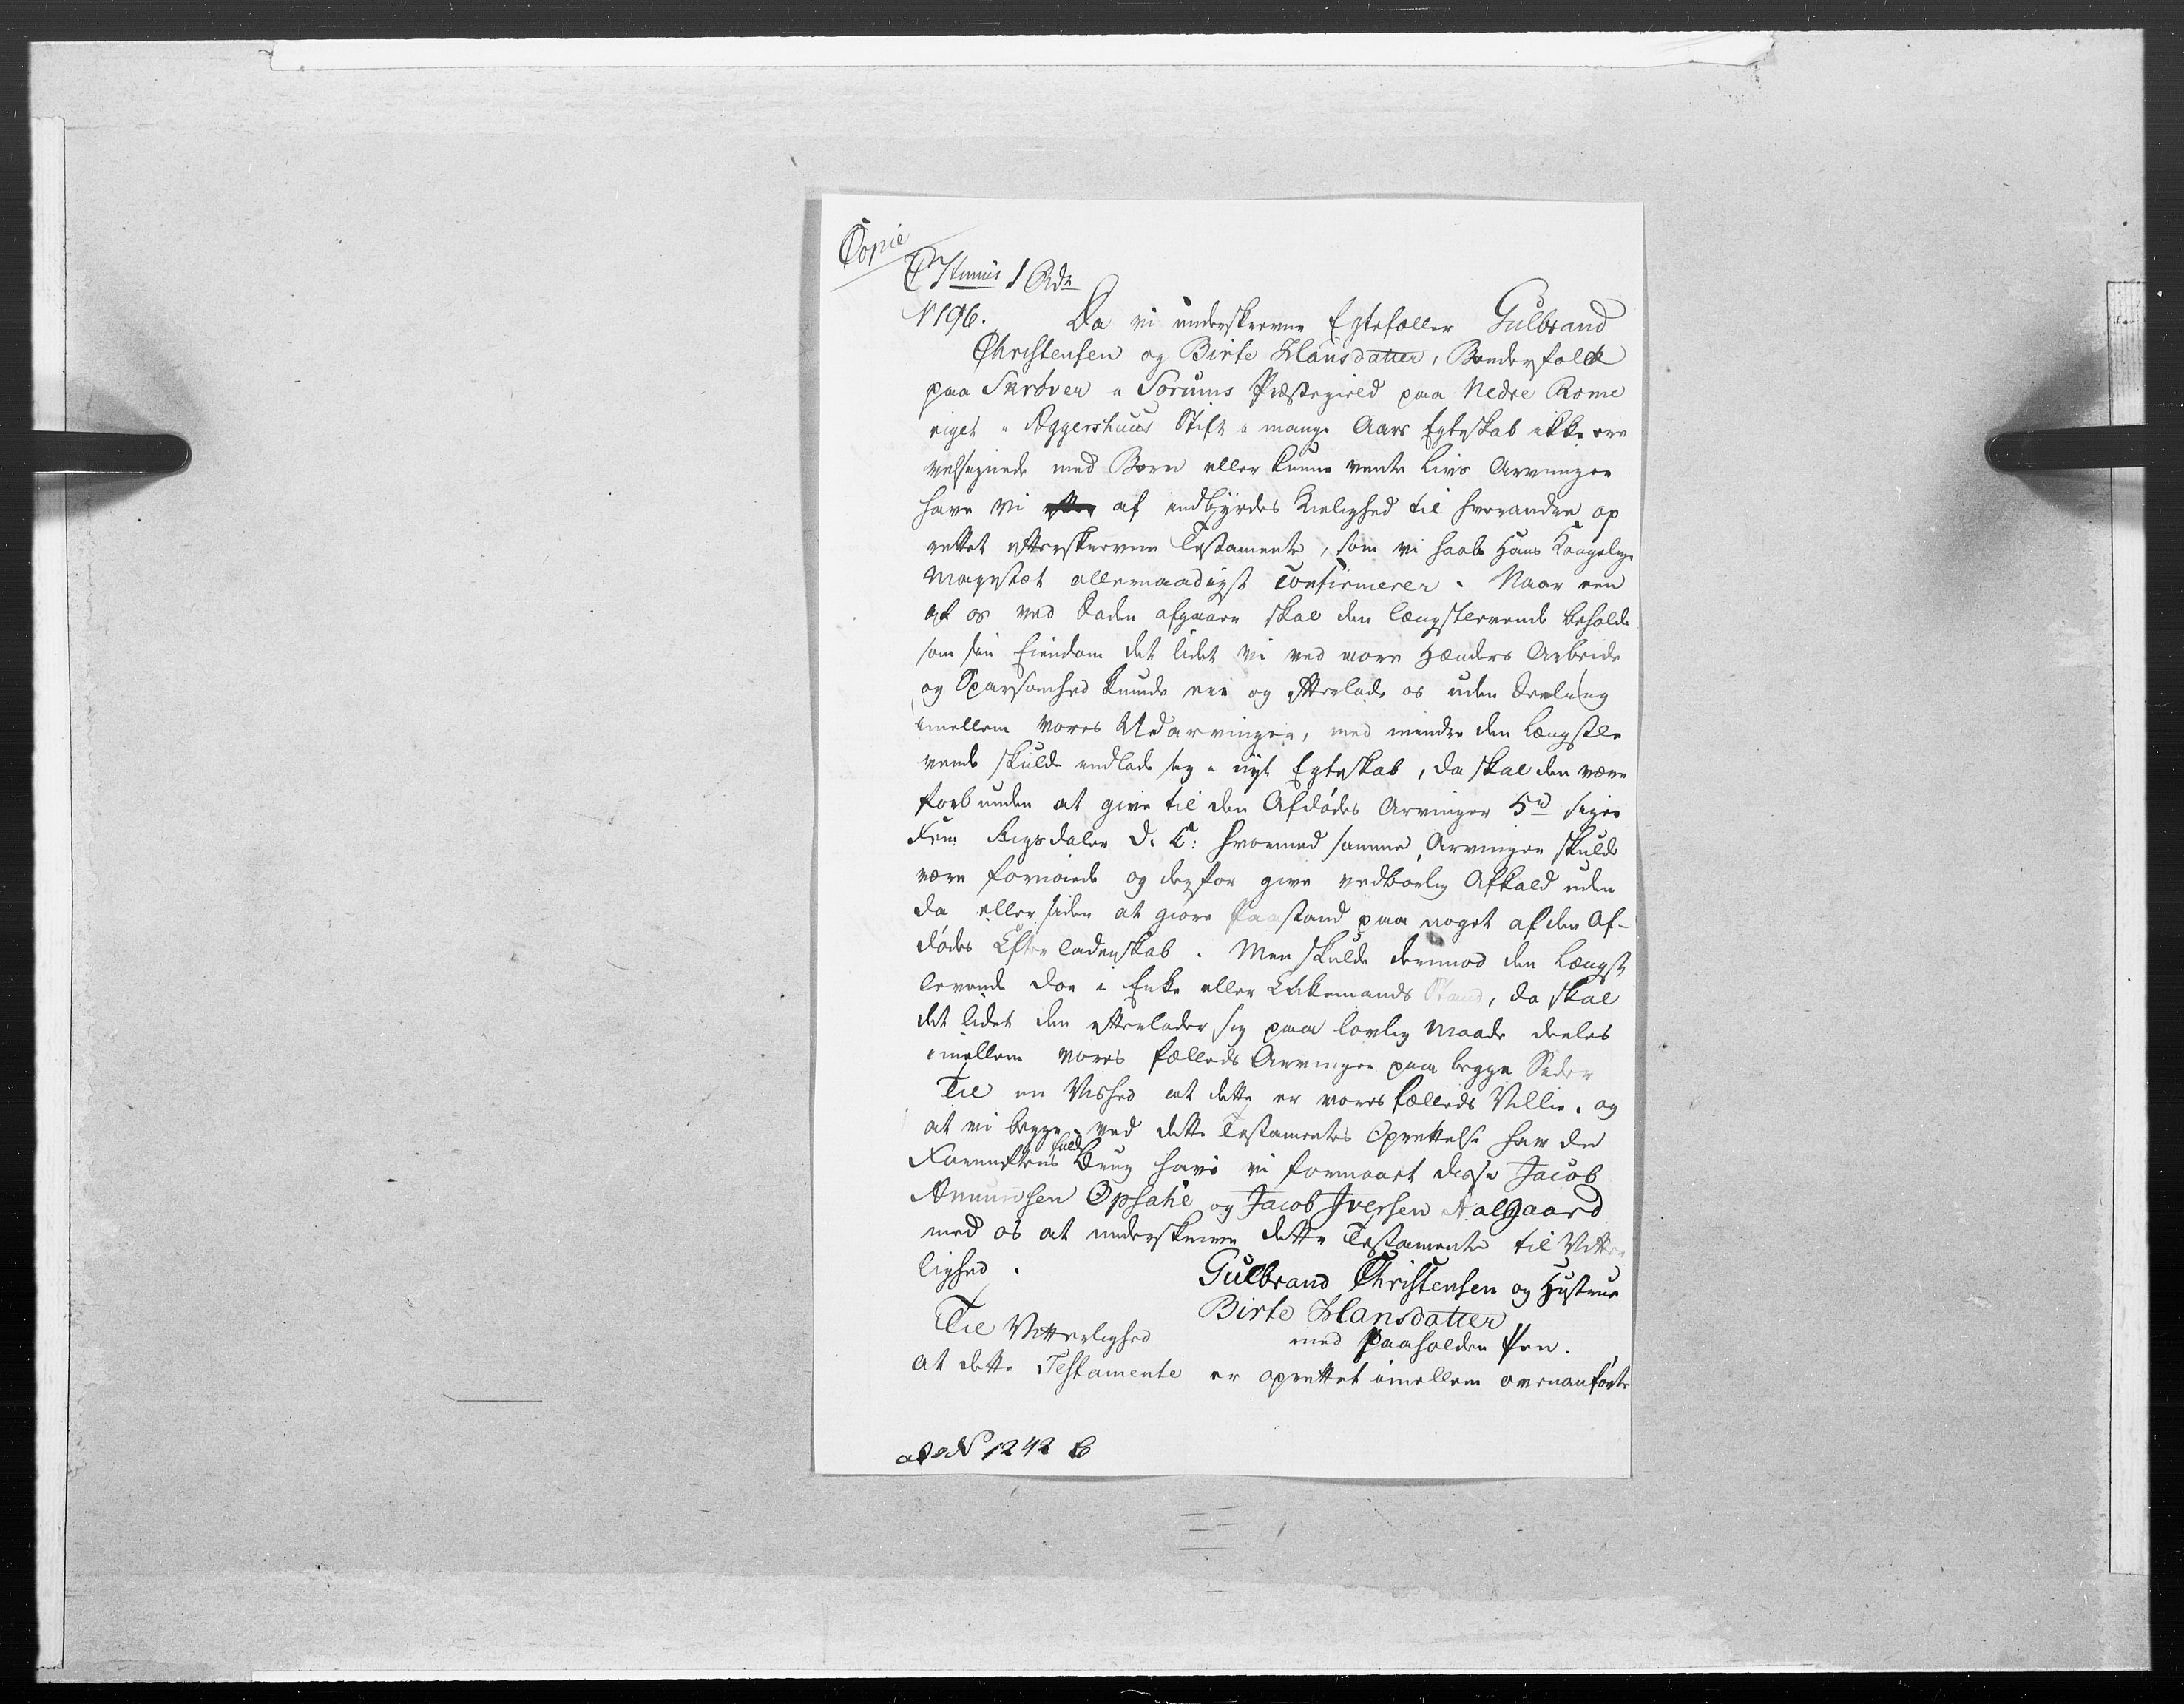 Copie
1 Rdr
N 196. Da vi underskrevne Egtefoller Gulbrand
Christensen og Birte Hansdatter, Bønderfolck
paa Skröver i Sorums Præstegield paa Nedre Rome
riget i Aggershuus Stift i mange Aars Egteskab ikke ere
velsignede med Børn eller kunne vente Livs Arvinger
have vi af indbyrdes Kielighed til hverandre op
rettet efterskrevne Testamente, som vi haabe Hans Kongelige
Mayestæt allernaadigst Confirmerer. Naar een
af os ved Døden afgaaer skal den længstlevende beholde
som sin Eiendom det lidet vi ved vore Hænders Arbeide
og Sparsomhed kunde eie og efterlade os uden Deeling
imellem vores Udarvinger, med mindre den Længstle
vende skulde indlade sig i nyt Egteskab, da skal den være
forbunden at give til den Afdødes Arvinger 5rd siger
Fem Rigsdaler D. C: hvormed samme Arvinger skulde
være fornøiede og derfor give vedbørlig Afkald uden
da eller siden at giöre Paastand paa noget af den Af-
dødes Efterladenskab. Men skulde derimod den Længst
levende døe i Enke eller Enkemands Stand, da skal
det lidet den efterlader sig paa lovlig Maade deeles
imellem vores fælleds Arvinger paa begge Sider
Til en Vished at dette er vores fælleds Villie, og
at vi begge ved dette Testamentes Oprettelse har den
Fornuftens fulde Brug have vi formaaet disse Jacob
Amundsen Opsahl og Jacob Iversen Aalgaard
med os at underskrive dette Testamente til Vitter
lighed.
Gulbrand Christensen og Hustrue
Birte Hansdatter
Til Vitterlighed
med paaholden Pen.
at dette Testamente er oprettet imellem ovenanførte
ad N 1242 B